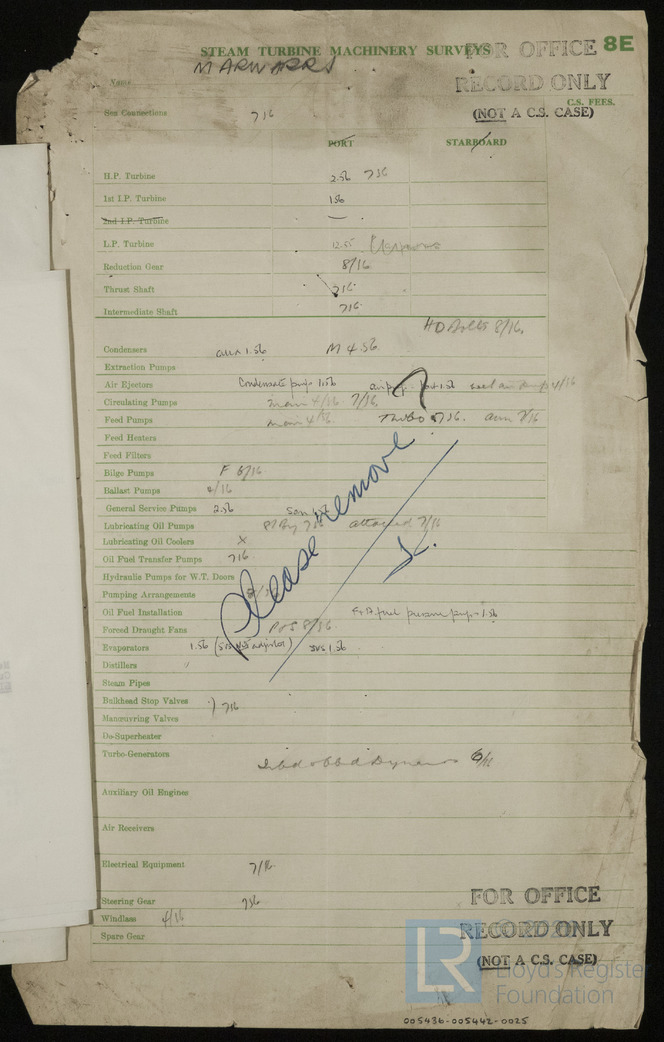 STEAM TURBINE MACHINERY SURVEYS
8E
FOR OFFICE
RECORD ONLY
C.S. FEES.
(NOT A C.S. CASE)
Name
Sea Connections 7/16
PORT STARBOARD
H.P. Turbine 2.56 7/56
1st I.P. Turbine 1.56
2nd I.P. Turbine —
L.P. Turbine 12.55
Reduction Gear 8/16
Thrust Shaft 7/16
Intermediate Shaft 7/16
HD Bolts 8/16
Condensers Aux 1.56 M 4.56
Extraction Pumps
Air Ejectors Condensate pump 1.56
Circulating Pumps main 4/16 7/16
Feed Pumps main 4/16 Turbo 5/16. aux 7/16
Feed Heaters
Feed Filters
Bilge Pumps F 6/16
Ballast Pumps 2/16
General Service Pumps 2.56 San 1.56
Lubricating Oil Pumps attached 7/16
Lubricating Oil Coolers X
Oil Fuel Transfer Pumps 7/16
Hydraulic Pumps for W.T. Doors
Pumping Arrangements
Oil Fuel Installation fuel pressure pump 1.56
Forced Draught Fans P&S 8/56
Evaporators 1.56 1.56
Distillers
Steam Pipes
Bulkhead Stop Valves ) 7/16
Manœuvring Valves
De-Superheater
Turbo-Generators Dynamos 6/16
Auxiliary Oil Engines
Air Receivers
Electrical Equipment 7/16
Steering Gear 7/56
Windlass 4/16
Spare Gear
Please remove
FOR OFFICE
RECORD ONLY
(NOT A C.S. CASE)
LR
Lloyd's Register
Foundation
005436-005442-0025